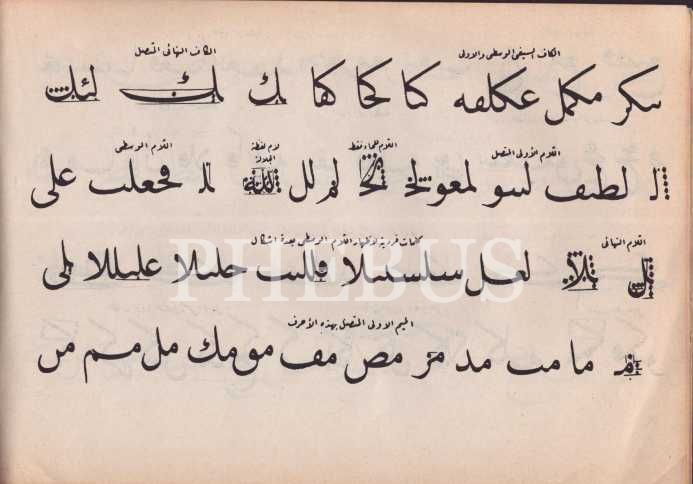 الكاف السيفي الوسطى والاولى الكاف النهائي المتصل
سكر مكمل عكلفه كا كحا كفا ك
اللام الأولى المتصل اللام للحاء فقط لام لفظة الجلالة اللام الوسطى
لطيف لسو لمعو لح لم لل الله فجعلت على
اللام النهائي كلمات فردية لاظهار اللام الوسطى بعدة اشكال
لعل سلسبيلا حليلا عليللا لى
الميم الاولى المتصل بهذه الأحرف
ما مت مد مر مص مف مو مك مل مم من
PHEBUS